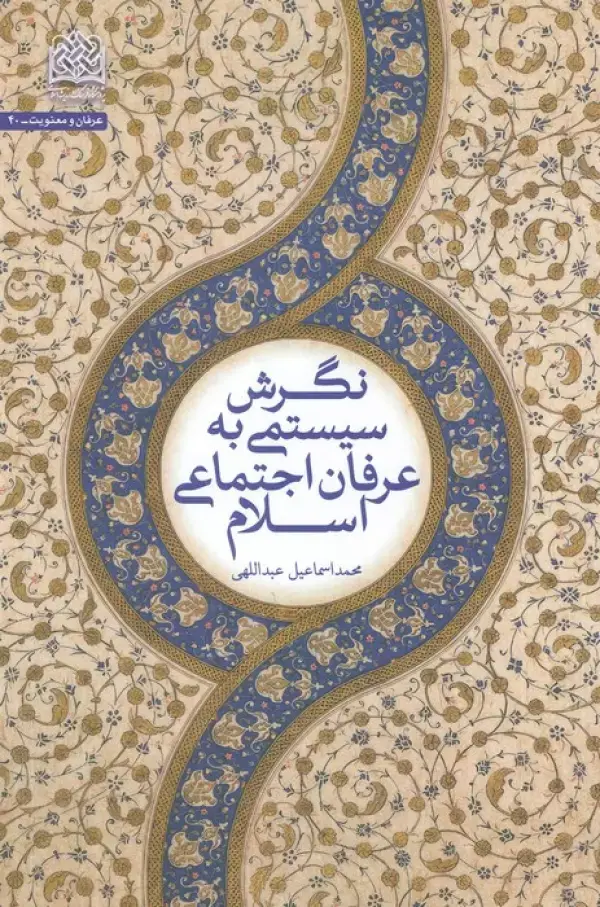 عرفان و معنویت - ۴۰
نگرش
سیستمی به
عرفان اجتماعی
اسلام
محمداسماعیل عبداللهی